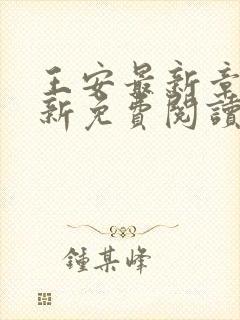 王安最新章
新免費閱讀
鍾某峰